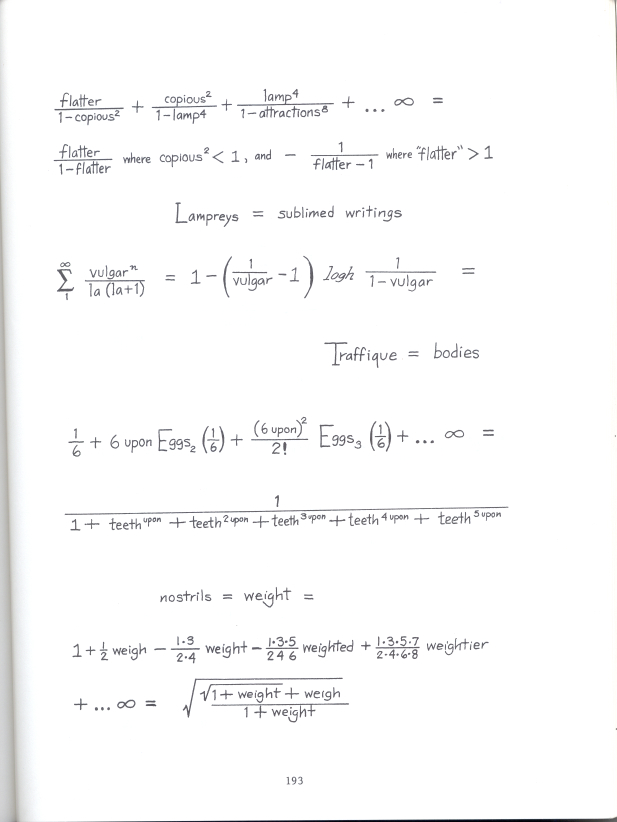 flatter/1−copious² + copious²/1−lamp4 + lamp⁴/1−attractions⁸ + ... ∞ =
flatter/1−flatter where copious² < 1, and − 1/flatter −1 where "flatter" > 1
Lampreys = sublimed writings
∞ Σ 1 vulgarⁿ/la (la+1) = 1 − (1/vulgar −1) logh 1/1−vulgar =
Traffique = bodies
1/6 + 6 upon Eggs₂ (1/6) + (6 upon)²/2! Eggs₃ (1/6) + ... ∞ =
1/1+ teeth^upon + teeth^2 upon + teeth^3 upon + teeth^4 upon + teeth^5 upon
nostrils = weight =
1+ 1/2 weigh − 1·3/2·4 weight − 1·3·5/2 4 6 weighted + 1·3·5·7/2·4·6·8 weightier
+ ... ∞ = √(√(1+ weight) + weigh/1 + weight)
193